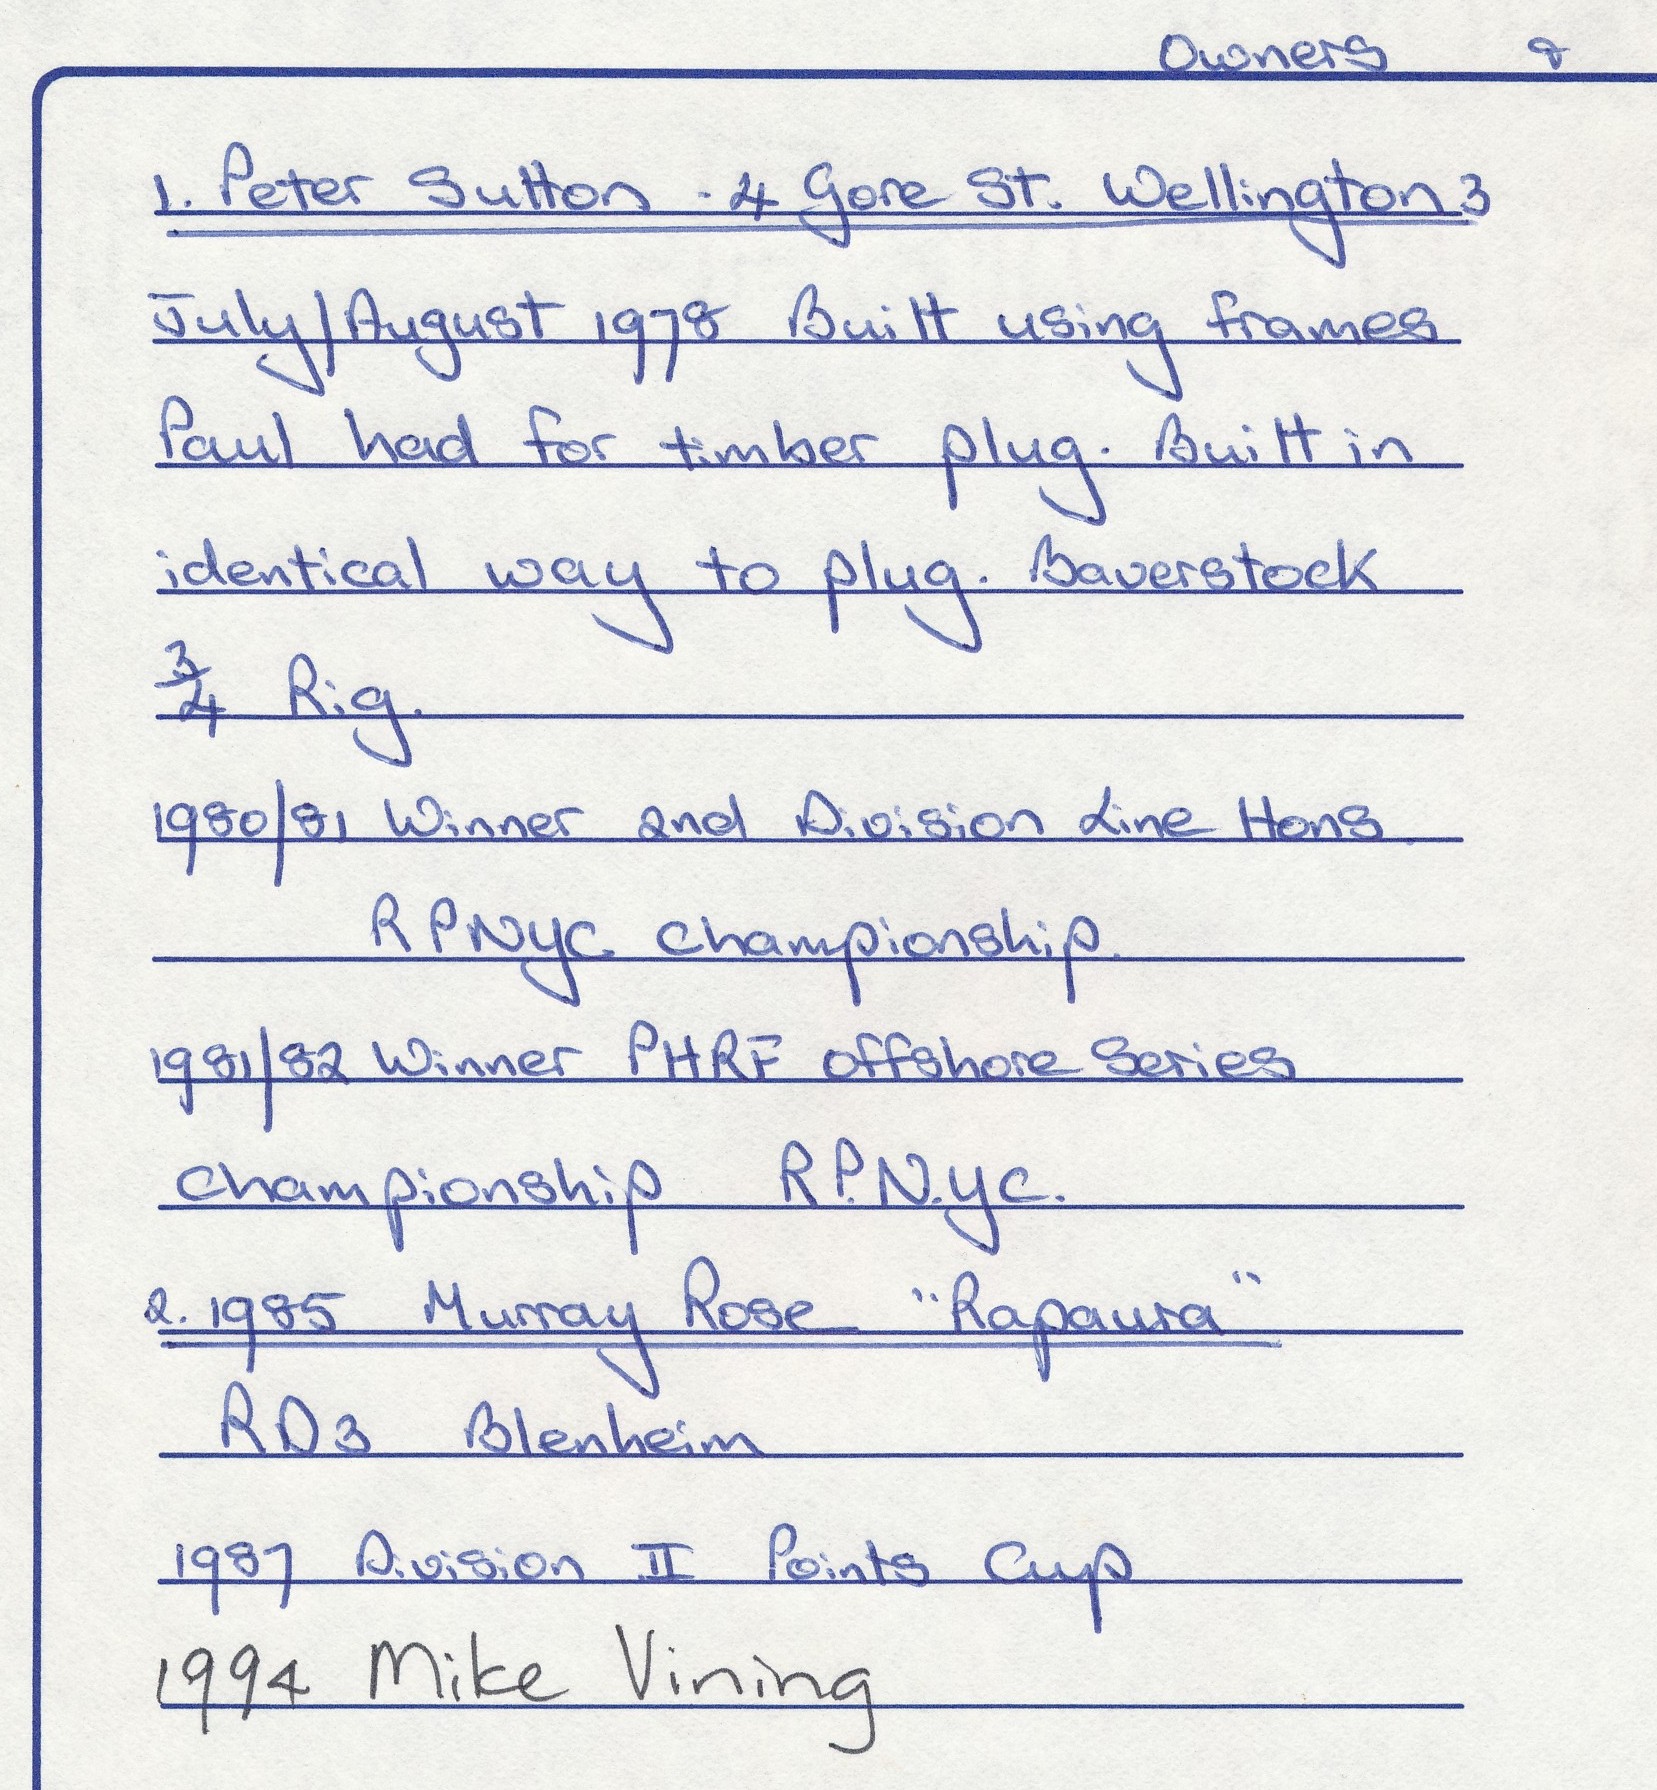 Owners &
1. Peter Sutton - 4 Gore St. Wellington 3
July/August 1978 Built using frames
Paul had for timber plug. Built in
identical way to plug. Baverstock
3/4 Rig.
1980/81 Winner 2nd Division Line Hons
RPNYC Championship.
1981/82 Winner PHRF offshore Series
Championship R.P.N.Y.C.
2. 1985 Murray Rose "Rapaura"
RD3 Blenheim
1987 Division II Points Cup
1994 Mike Vining